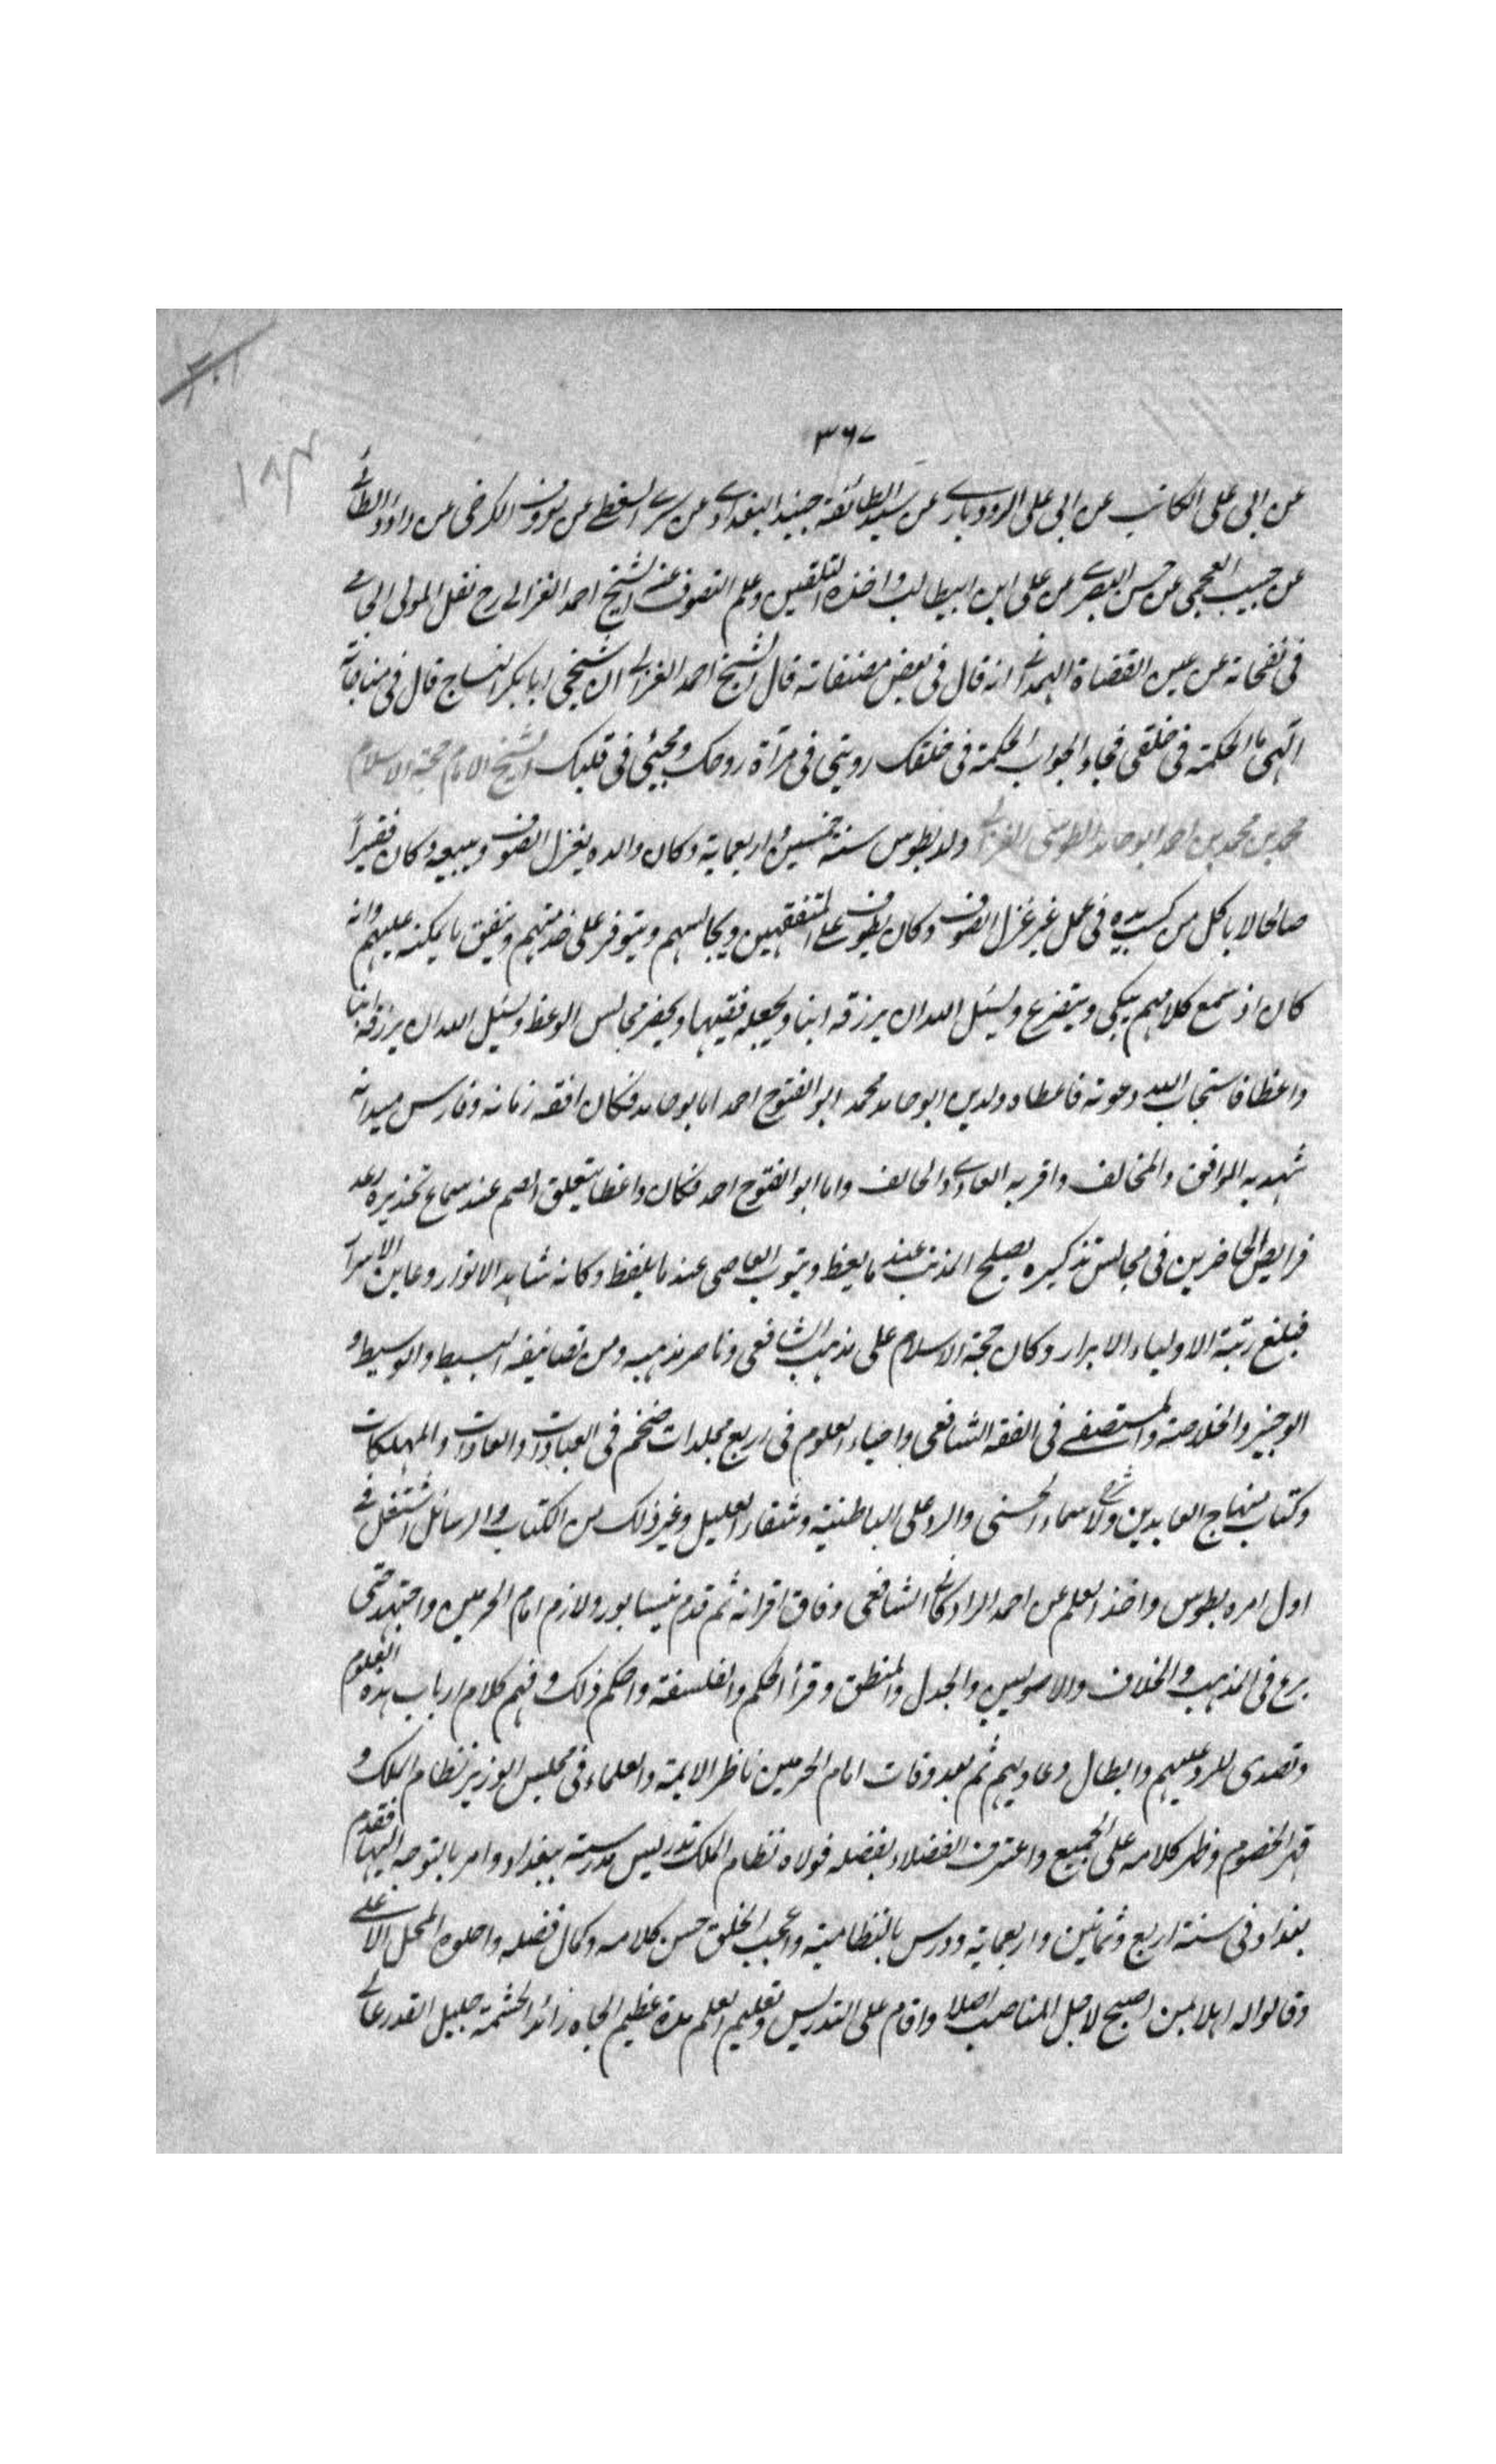 ٣٦٧
عن ابى على الكاتب عن ابى على الرودبارى عن سيد الطائفة جنيد البغدادى عن سرى السقطى عن معروف الكرخى عن داود الطائى
عن حبيب العجمى عن حسن البصرى عن على ابن ابيطالب واخذه التلقين وعلم التصوف عنه الشيخ احمد الغزالى رح نقل المولى الجامى
فى نفحاته عن عين القضاة الهمدانى انه قال فى بعض مصنفاته قال الشيخ احمد الغزالى ان شيخى ابا بكر النساج قال فى مناجاته
الهى ما الحكمة فى خلقى فجاء الجواب الحكمة فى خلقك رويتى فى مرآة روحك ومحبتى فى قلبك الشيخ الامام حجة الاسلام
محمد بن محمد بن احمد ابو حامد الطوسى الغزالى ولد بطوس سنة خمسين واربعماية وكان والده يغزل الصوف ويبيعه وكان فقيراً
صالحا لا ياكل من كسب يده فى عمل غير غزل الصوف وكان يطوف على المتفقهين ويجالسهم ويتوفر على خدمتهم وينفق ما يمكنه عليهم وانه
كان اذ سمع كلامهم يبكى ويتضرع ويسئل الله ان يرزقه ابنا ويجعله فقيها ويحضر مجالس الوعظ ويسئل الله ان يرزقه ابنا
واعظا فاستجاب الله دعوته فاعطاه ولدين ابو حامد محمد ابو الفتوح احمد اما ابو حامد فكان افقه زمانه وفارس ميدانه
شهد به الموافق والمخالف واقر به العادى والحالف واما ابو الفتوح احمد فكان واعظا يتفلق الصم عند سماع تحذيره وترعد
فرايص الحاضرين فى مجالس تذكيره يصلح المذنب عند ما يعظ ويتوب العاصى عند ما يلفظ وكانه شاهد الانوار وعاين الاسرار
فبلغ رتبة الاولياء الابرار وكان حجة الاسلام على مذهب الشافعى وناصر مذهبه ومن تصانيفه البسيط والوسيط و
الوجيز والخلاصة والمستصفى فى الفقه الشافعى واحياء العلوم فى اربع مجلدات ضخم فى العبادات والعادات والمهلكات
وكتاب منهاج العابدين ولاسماء الحسنى والرد على الباطنية وشفاء العليل وغير ذلك من الكتاب والرسائل اشتغل فى
اول امره بطوس واخذ العلم عن احمد الرادكانى الشافعى وفاق اقرانه ثم قدم نيسابور ولازم امام الحرمين واجتهد حتى
برع فى المذهب والخلاف والاصوليين والجدل والمنطق وقرأ الحكم والفلسفة واحكم ذلك وفهم كلام ارباب هذه العلوم
وتصدى للرد عليهم وابطال دعاويهم ثم بعد وفات امام الحرمين ناظر الايمة والعلماء فى مجلس الوزير نظام الملك و
قهر الخصوم وظهر كلامه على الجميع واعترف الفضلاء بفضله فولاه نظام الملك تدريس مدرسته ببغداد وامر بالتوجه اليها فقدم
بغداد فى سنة اربع وثمانين واربعماية ودرس بالنظامية واعجب الخلق حسن كلامه وكمال فضله واحلوه المحل الاعلى
وقالوا له اهلا بمن اصبح لاجل المناصب اهلا واقام على التدريس وتعليم العلم مدة عظيم الجاه زائد الحشمة جليل القدر عالى